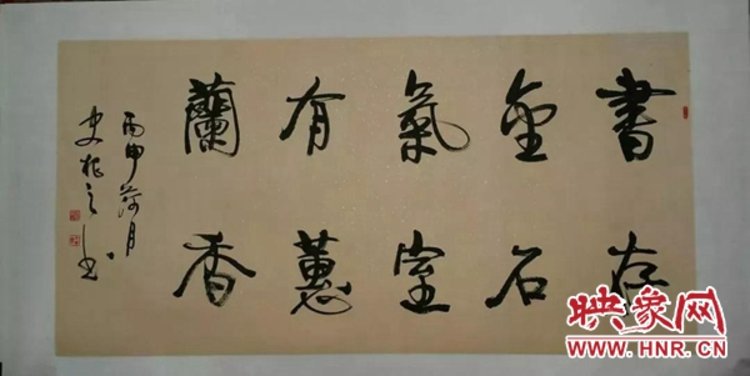 書存
金石
氣室
有蕙
蘭香
丙申荷月
映象网
WWW.HNR.CN